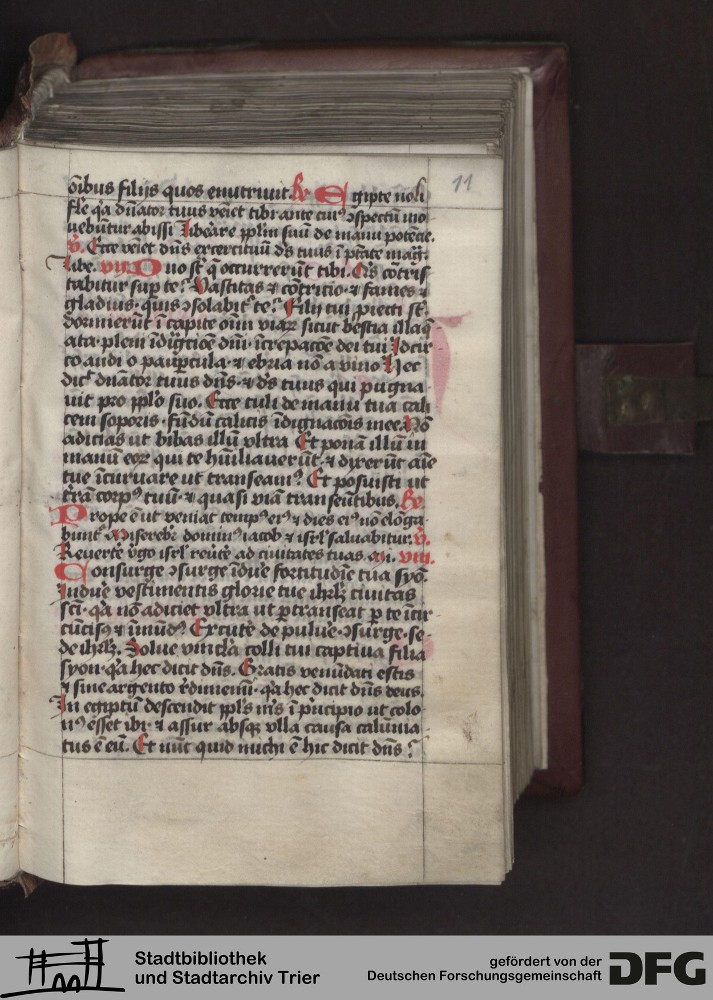 11
o̅ibus filijs quos enutriuit. R̶ Egipte noli
fle͛ q̓a dn̅ator tuus ve̅iet tibi ante cui᷒ ↄspectu̅ mo
uebu̅tur abissi Libeare pp̅lm suu̅ de manu pote̅cie.
v̓. Ecce ve̅iet dn̅s exercituu̅ ds̅ tuus i̅ p̅tate mag̅.
Libe. vij. Duo su̅t q̓ occurreru̅t tibi. Q̓s co̅tris
tabitur sup̱ te? Vastitas ⁊ co̅tricio ⁊ fames ⁊
gladius. quis ↄsolabit᷑ te? Filij tui p̓iecti su̅t
dormieru̅t i̅ capite o̅im viaꝝ sicut bestia illaq̅
ata. pleni i̅dig̅tio̅e dn̅i. i̅crepac̅oe dei tui Idcir
co audi o paup̱cula. ⁊ ebria no̅ a vino Hec
dic᷑ dn̅ator tuus dn̅s. ⁊ ds̅ tuus qui pugna
uit pro pp̅lo suo. Ecce tuli de manu tua cali
cem soporis. fu̅du̅ calicis i̅dignac̅ois mee. No̅
adicias ut bibas illu̅ vltra Et pona̅ illu̅ in
manu̅ eoꝝ qui te hu̅iliaueru̅t. ⁊ dixeru̅t ai̅e
tue i̅curuare ut transeam᷒? Et posuisti ut
t̓ra̅ corp᷒ tuu̅. ⁊ quasi via̅ transeu̅tibus. R̶.
Prope e̅ ut veniat temp᷒ ei᷒ ⁊ dies ei᷒ no̅ elo̅ga
bunt᷑ Miserebr̅ domin᷒ iacob ⁊ isrl̅ saluabitur. v̓.
Reuerte͛ v̓go isrl̅ reu͛te͛ ad ciuitates tuas. Mi. viii.
Consurge ↄsurge i̅due͛ fortitudi̅e tua syo̅.
Indue͛ vestimentis glorie tue ihrl̅m ciuitas
sc̅i. q̓a no̅ adiciet vltra ut p̱transeat p̱ te i̅cir
cu̅cis᷒ ⁊ i̅mu̅d᷒. Excute͛ de pulue͛. ↄsurge. se
de ihrl̅m. Solue vincl̅a colli tui captiua filia
syon. q̓a hec dicit dn̅s. Gratis venu̅dati estis
⁊ sine argento r̓dimemi̅. q̓a hec dicit dn̅s deus.
In egiptu̅ descendit pp̅ls m̅s i̅ p̓ncipio ut colo
n᷒ esset ibi. ⁊ assur absqꝫ vlla causa calu̅nia
tus e̅ eu̅. Et nu̅c quid michi e̅ hic dicit dn̅s?
Stadtbibliothek
und Stadtarchiv Trier
gefördert von der
Deutschen Forschungsgemeinschaft
DFG